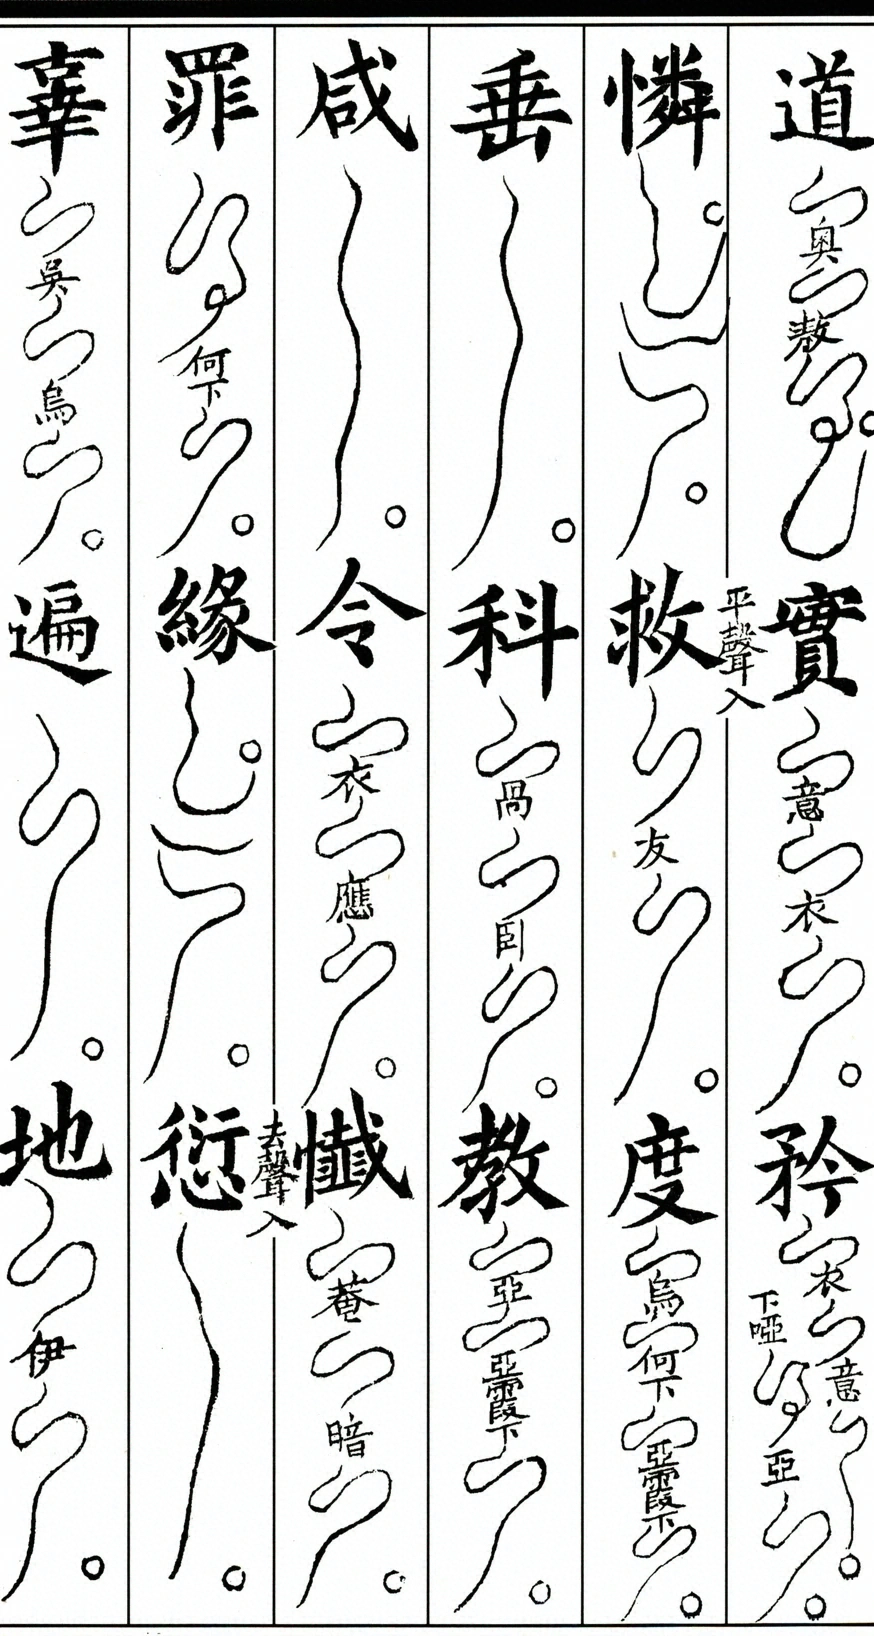 道奥敖實平聲入意衣矜衣意下啞亞
憐救友度烏何下亞霞下
垂科咼臥教亞亞霞下
咸令衣應懺去聲入菴暗
罪何下緣愆
辜吳烏遍地伊